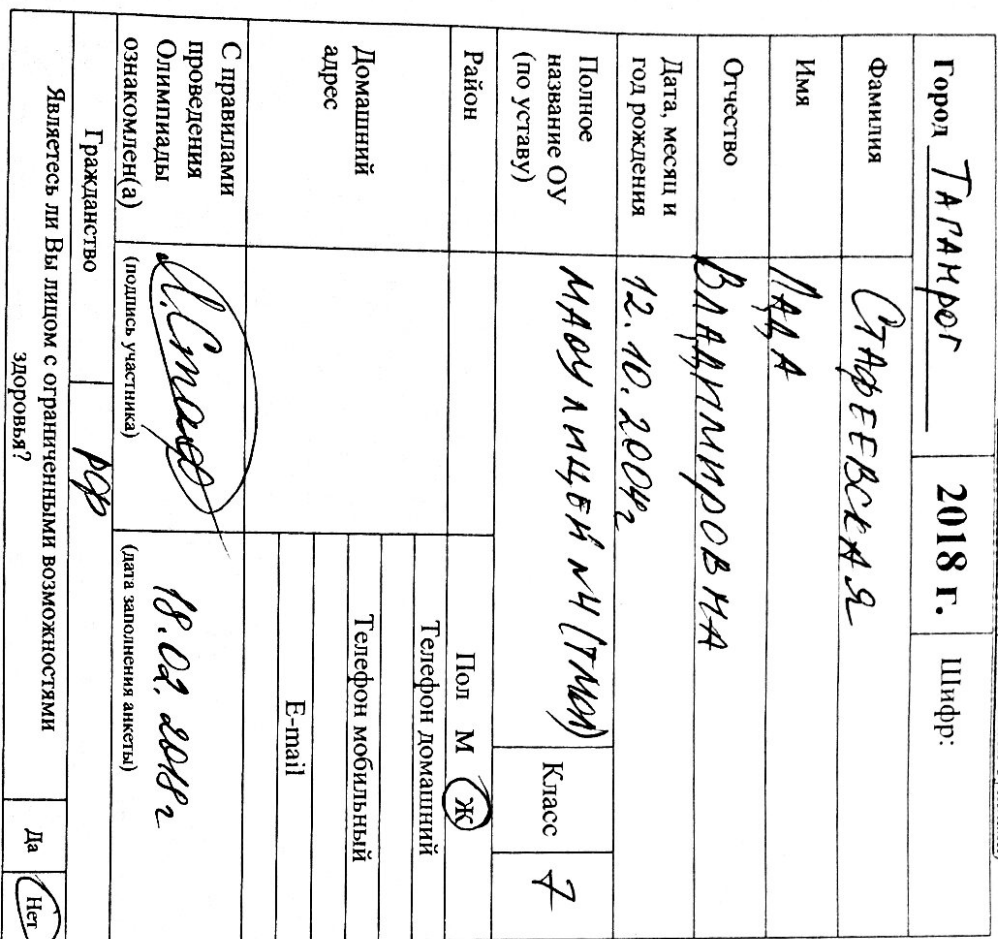 Город Таганрог 2018 г. Шифр:
Фамилия Стафеевская
Имя Лада
Отчество Владимировна
Дата, месяц и
год рождения 12.10.2004г
Полное
название ОУ
(по уставу) МАОУ лицей №4 (ТМОЛ) Класс 7
Район Пол М Ж
Домашний
адрес
Телефон домашний
Телефон мобильный
E-mail
С правилами
проведения
Олимпиады
ознакомлен(а) Л.Стаф 18.02.2018г
(подпись участника) (дата заполнения анкеты)
Гражданство РФ
Являетесь ли Вы лицом с ограниченными возможностями
здоровья? Да Нет